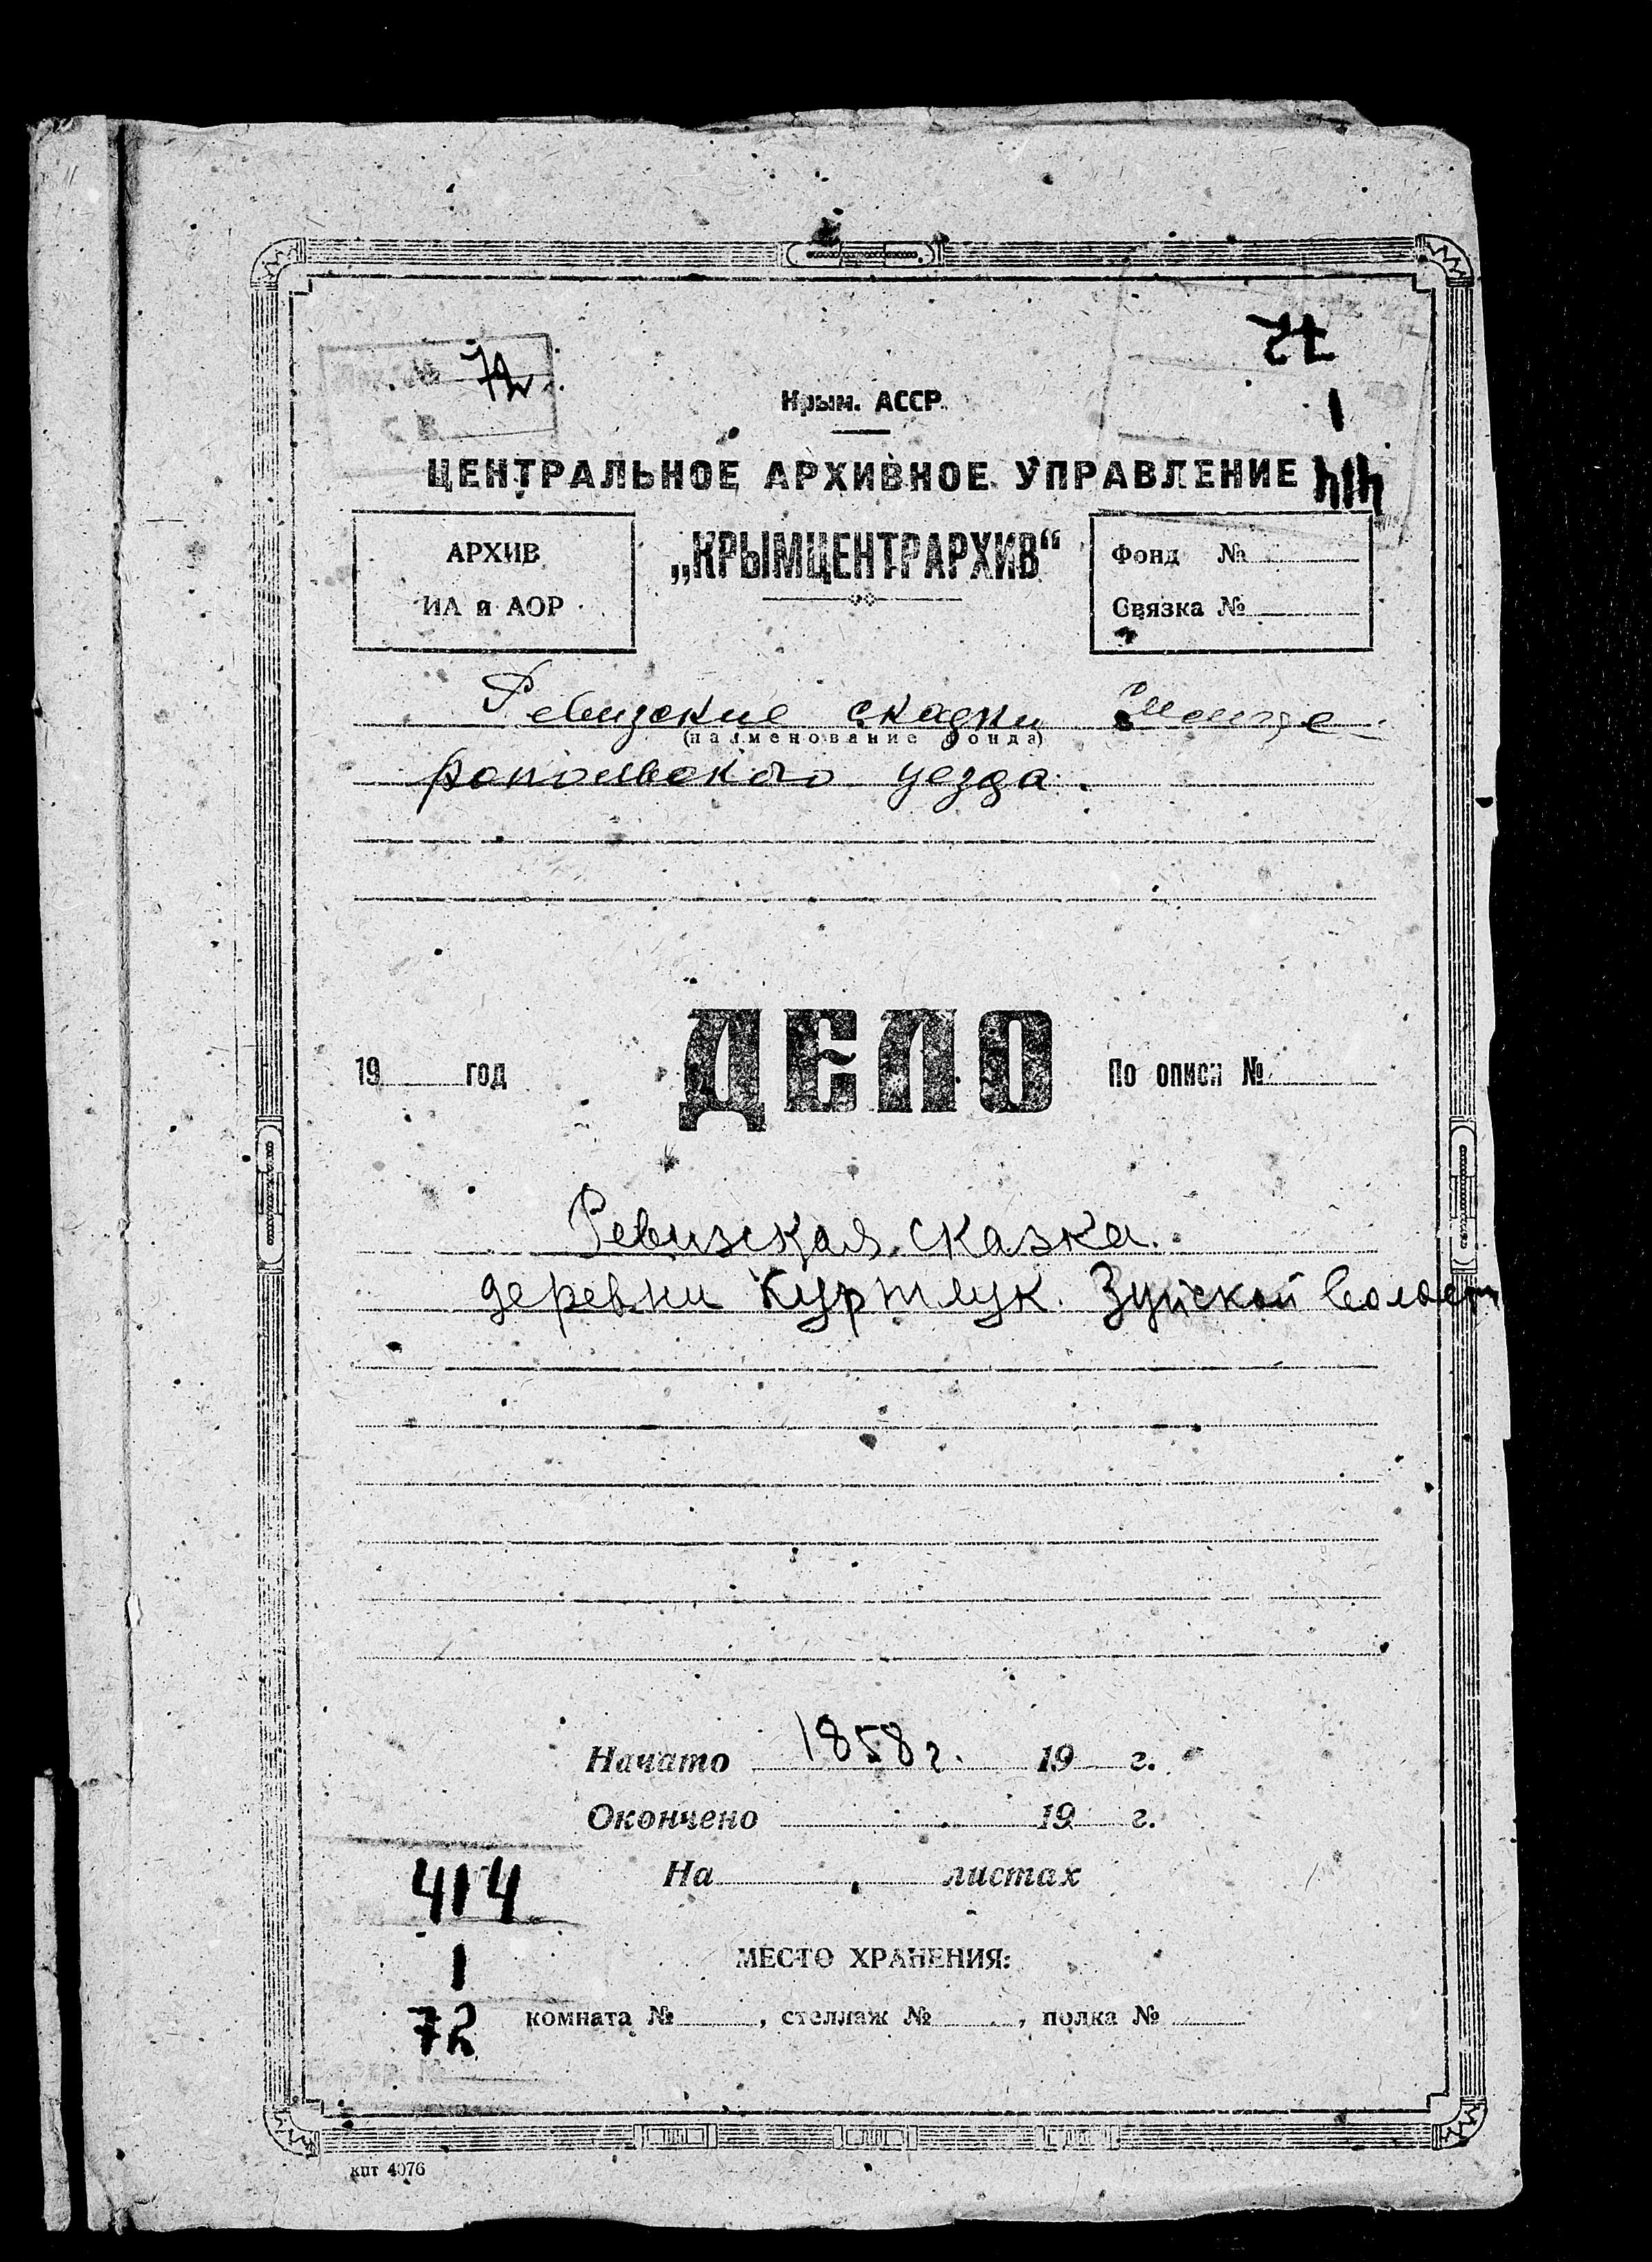 72
72
1
414
Крым. АССР.
ЦЕНТРАЛЬНОЕ АРХИВНОЕ УПРАВЛЕНИЕ
„КРЫМЦЕНТРАРХИВ“
АРХИВ
ИА и АОР
Фонд №
Связка №
Ревизские сказки Симфе-
(наименование фонда)
ропольского уезда.
ДЕЛО
19 год
По описи №
Ревизская сказка
деревни Куртлук Зуйской волости
Начато 1858 г. 19 г.
Окончено 19 г.
На листах
414
1
72
МЕСТО ХРАНЕНИЯ:
комната № , стеллаж № , полка №
кпт 4076